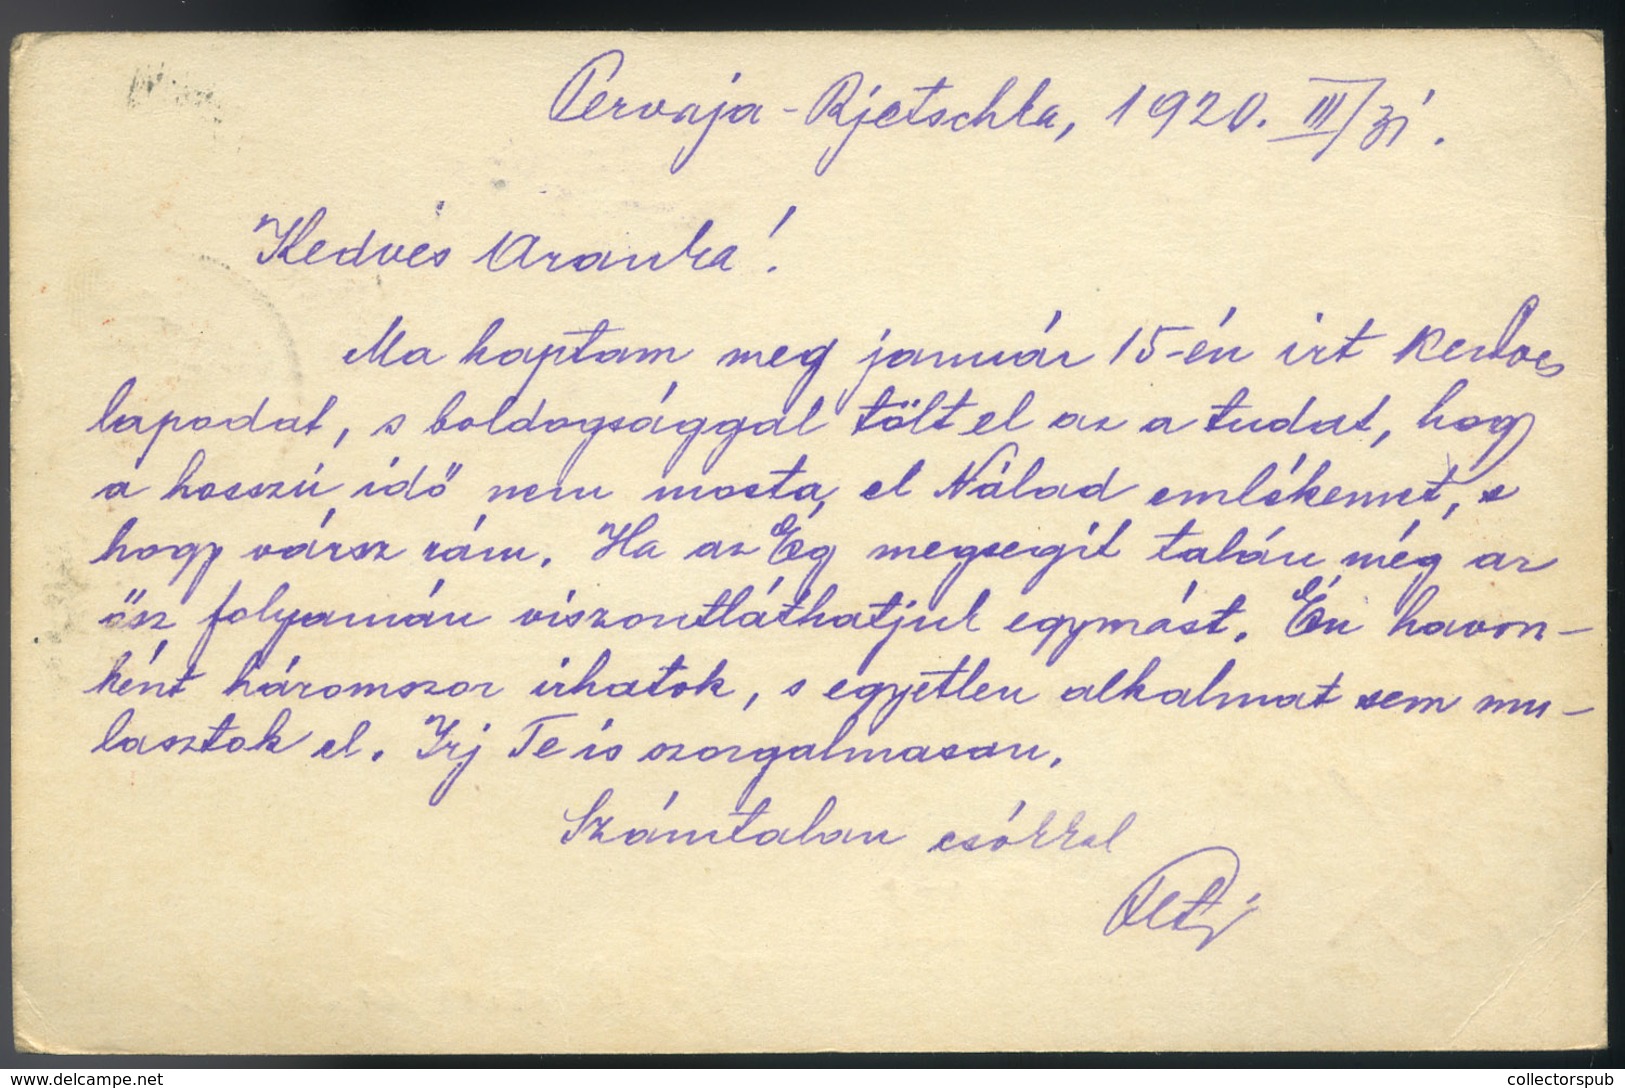 Pervaja-Rjetschka, 1920. III/31.
Kedves Aranka!
Ma kaptam meg január 15-én irt kedves
lapodat, s boldogsággal tölt el az a tudat, hogy
a hosszú idő nem mosta el Nálad emlékemet, s
hogy vársz rám. Ha az Ég megsegit talán még az
ősz folyamán viszontláthatjuk egymást. Én havon-
ként háromszor irhatok, s egyetlen alkalmat sem mu-
lasztok el. Irj Te is szorgalmasan.
Számtalan csókkal
delcampe.net
collectorspub